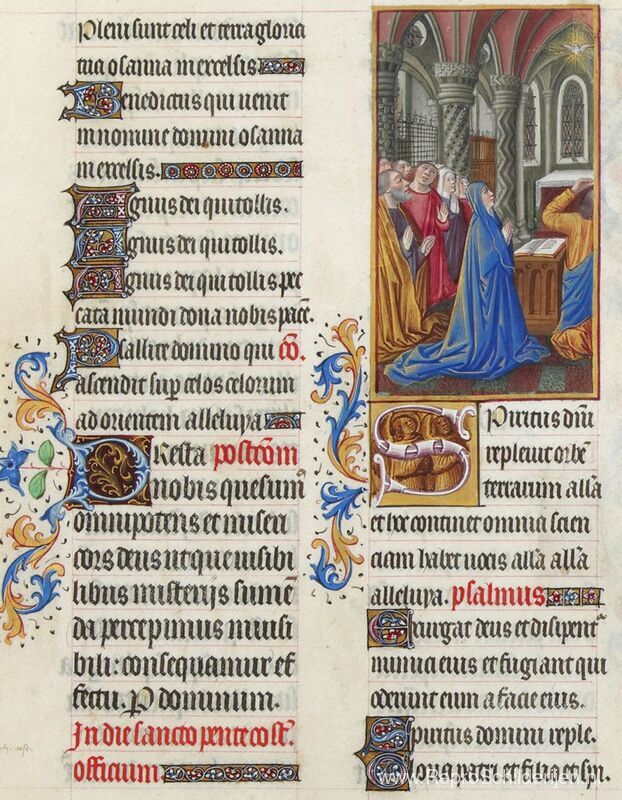 Pleni sunt celi et terra gloria
tua osanna in excelsis.
Benedictus qui uenit
in nomine domini osanna
in excelsis.
Agnus dei qui tollis.
Agnus dei qui tollis.
Agnus dei qui tollis pec
cata mundi dona nobis pacē.
Psallite domino qui cō.
ascendit sup celos celorum
ad orientem alleluya
Presta postcōm
nobis quesum̄
omnipotens et miseri
cors deus ut que uisibi
libus misterijs sumē
da percepimus inuisi
bili: consequamur ef
fectu. P dominum.
In die sancto pentecost̄.
officium
Spiritus dn̄i
repleuit orbē
terrarum alla
et hoc continet omnia scien
ciam habet uocis alla alla
alleluya. psalmus
Exurgat deus et disipent
inimici eius et fugiant qui
oderunt eum a facie eius.
Spiritus domini reple.
Gloria patri et filio et spi.